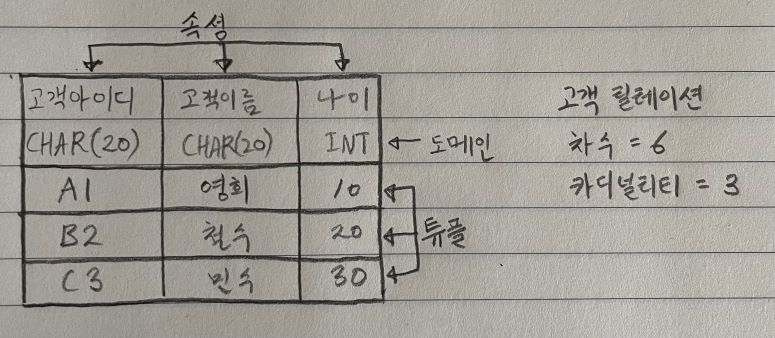 속성
고객아이디 고객이름 나이
CHAR(20) CHAR(20) INT ← 도메인
A1 영희 10
B2 철수 20
튜플
C3 민수 30
고객 릴레이션
차수 = 6
카디널리티 = 3